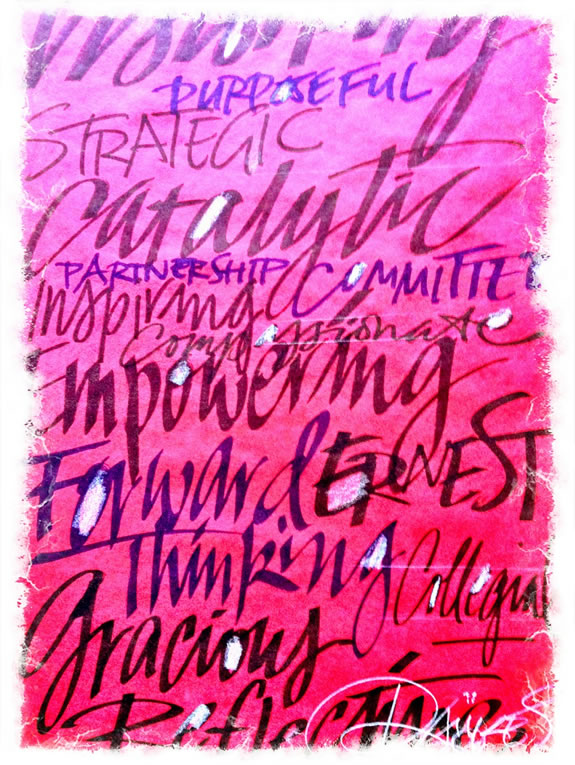 PURPOSEFUL
STRATEGIC
Catalytic
PARTNERSHIP COMMITTE
Inspiring
Compassionate
Empowering
Forward ERNEST
Thinking Collegia
Gracious
Reflective